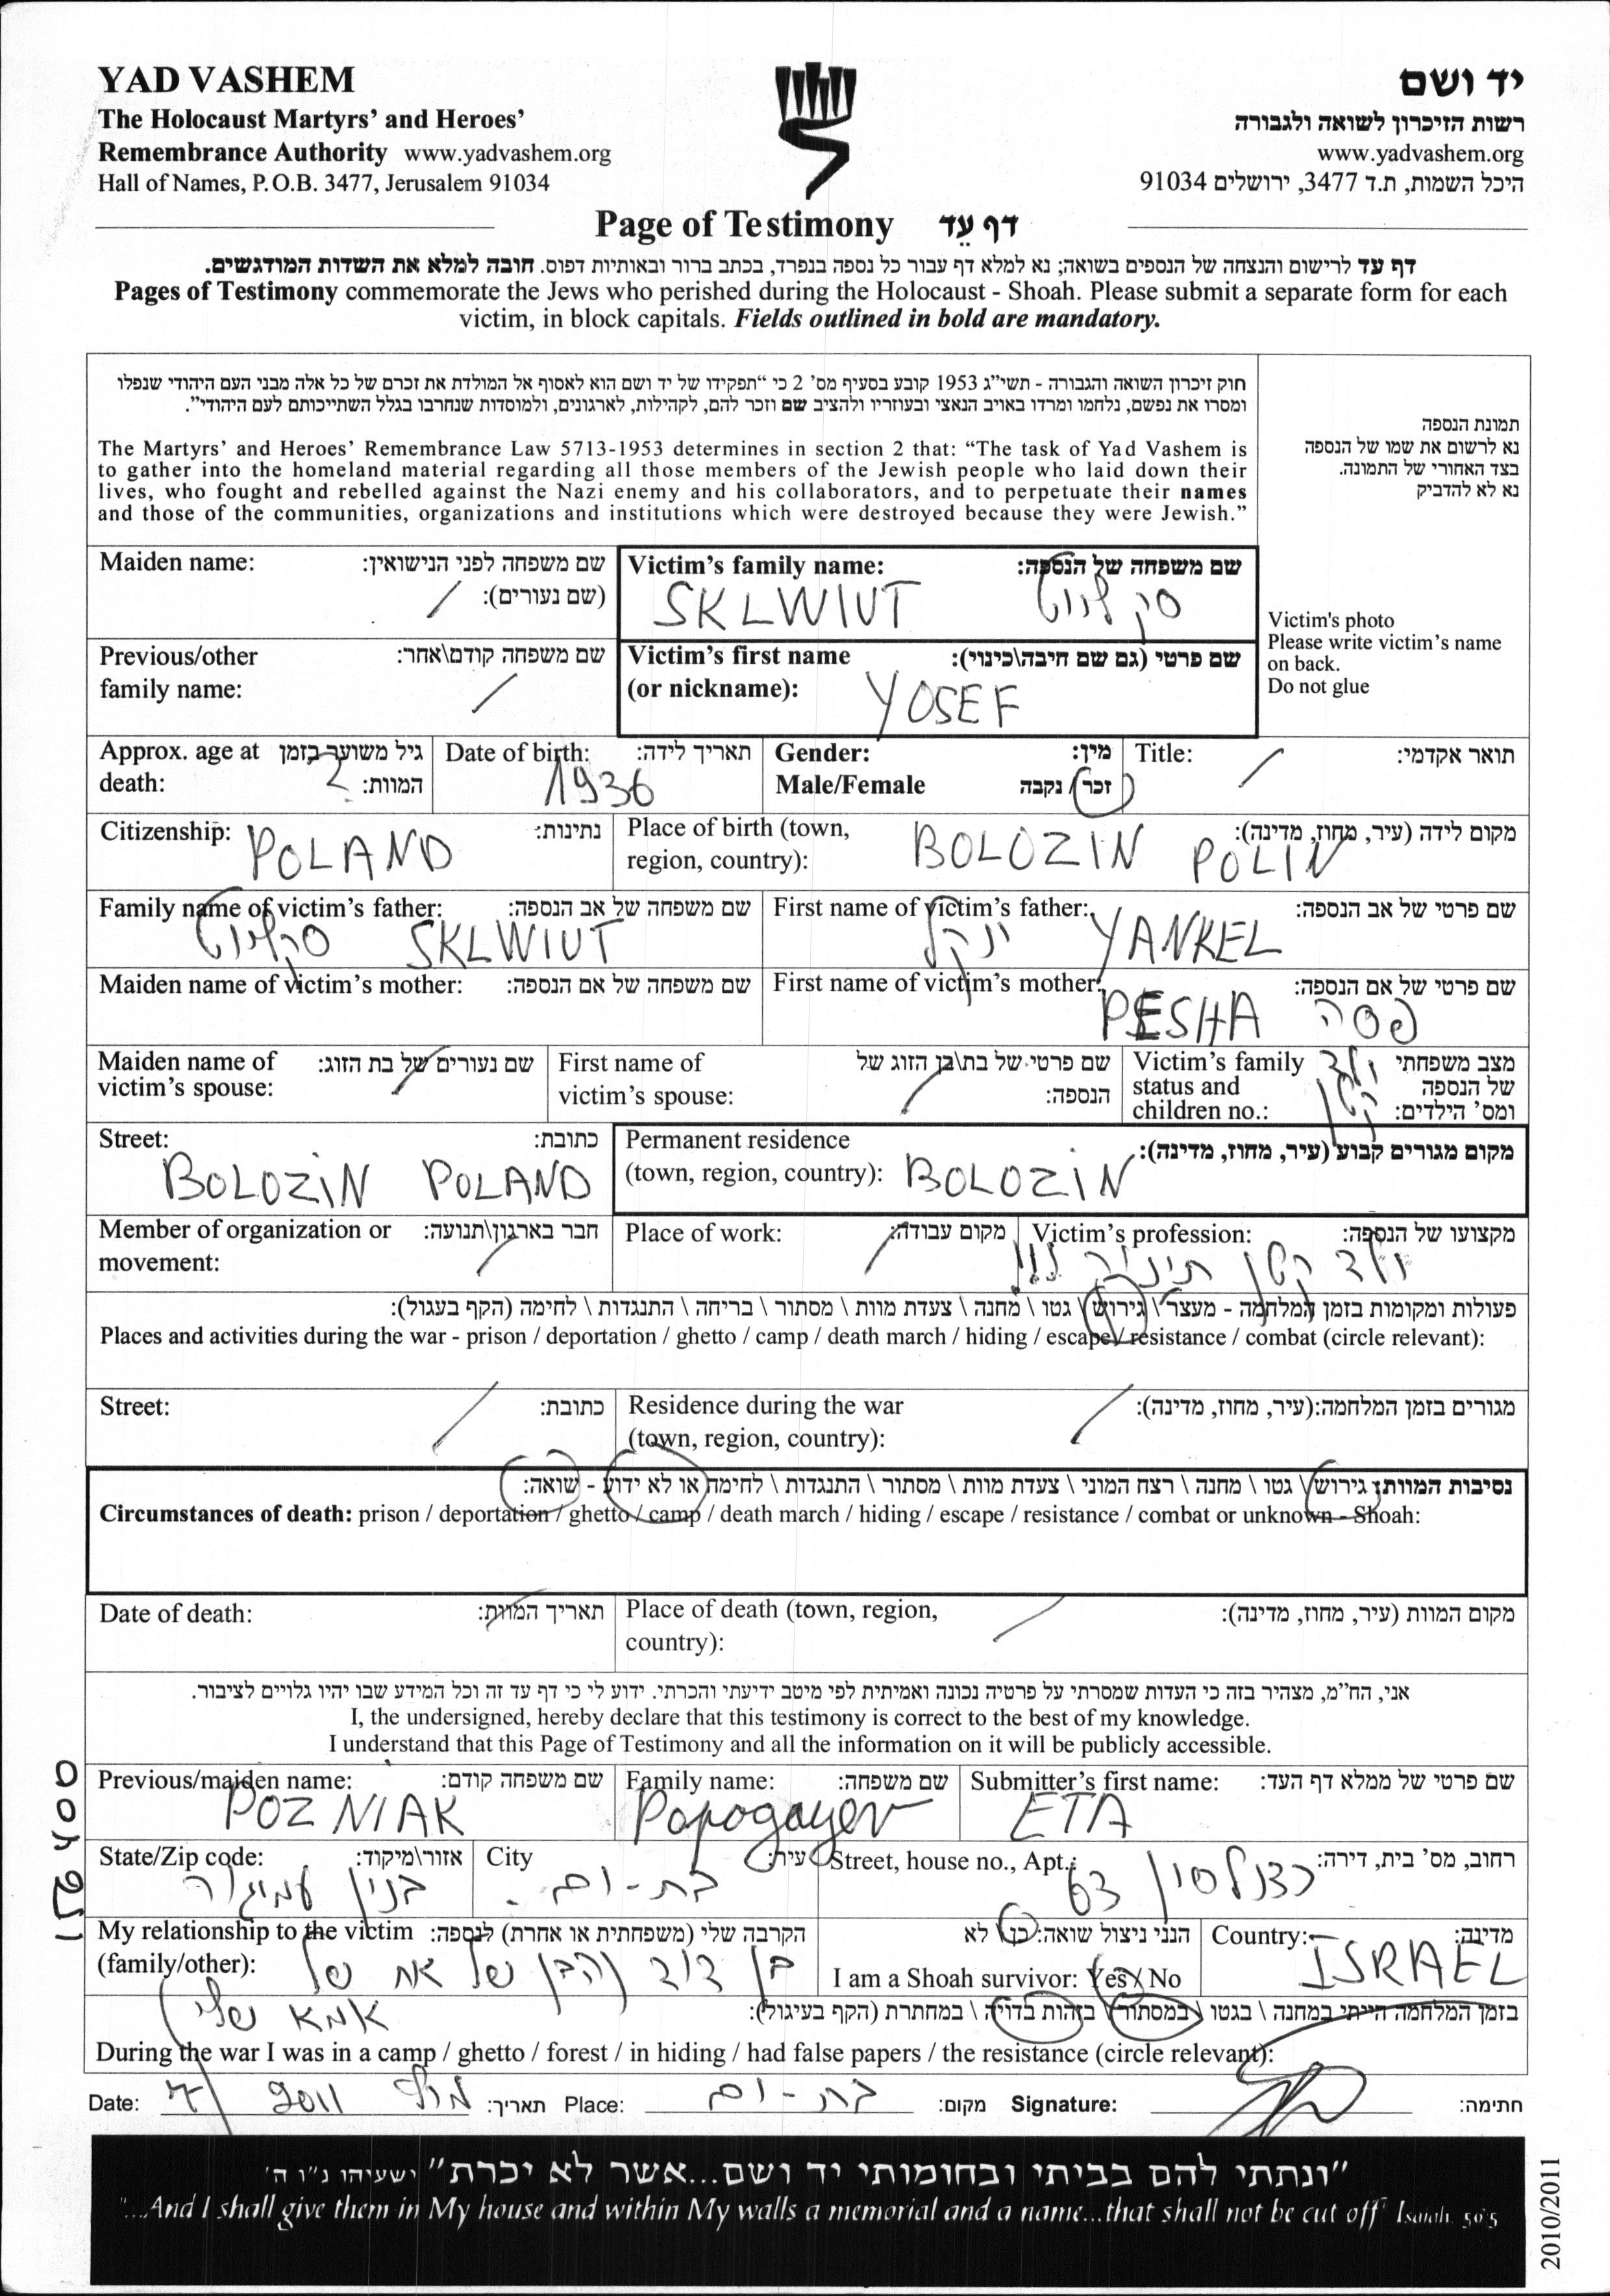 YAD VASHEM
The Holocaust Martyrs' and Heroes'
Remembrance Authority www.yadvashem.org
Hall of Names, P.O.B. 3477, Jerusalem 91034
יד ושם
רשות הזיכרון לשואה ולגבורה
www.yadvashem.org
היכל השמות, ת.ד 3477, ירושלים 91034
Page of Testimony דף עֵד
דף עד לרישום והנצחה של הנספים בשואה; נא למלא דף עבור כל נספה בנפרד, בכתב ברור ובאותיות דפוס. חובה למלא את השדות המודגשים.
Pages of Testimony commemorate the Jews who perished during the Holocaust - Shoah. Please submit a separate form for each
victim, in block capitals. Fields outlined in bold are mandatory.
חוק זיכרון השואה והגבורה - תשי"ג 1953 קובע בסעיף מס' 2 כי "תפקידו של יד ושם הוא לאסוף אל המולדת את זכרם של כל אלה מבני העם היהודי שנפלו
ומסרו את נפשם, נלחמו ומרדו באויב הנאצי ובעוזריו ולהציב שם וזכר להם, לקהילות, לארגונים, ולמוסדות שנחרבו בגלל השתייכותם לעם היהודי".
The Martyrs' and Heroes' Remembrance Law 5713-1953 determines in section 2 that: "The task of Yad Vashem is
to gather into the homeland material regarding all those members of the Jewish people who laid down their
lives, who fought and rebelled against the Nazi enemy and his collaborators, and to perpetuate their names
and those of the communities, organizations and institutions which were destroyed because they were Jewish."
תמונת הנספה
נא לרשום את שמו של הנספה
בצד האחורי של התמונה.
נא לא להדביק
Victim's photo
Please write victim's name
on back.
Do not glue
Maiden name: שם משפחה לפני הנישואין:
(שם נעורים): /
Victim's family name: שם משפחה של הנספה:
SKLWIUT סקלוויט
Previous/other שם משפחה קודם\אחר:
family name: /
Victim's first name שם פרטי (גם שם חיבה\כינוי):
(or nickname): YOSEF
Approx. age at גיל משוער בזמן
death: 2 המוות:
Date of birth: תאריך לידה:
1936
Gender: מין:
Male/Female זכר / נקבה
Title: / תואר אקדמי:
Citizenship: POLAND נתינות:
Place of birth (town, מקום לידה (עיר, מחוז, מדינה):
region, country): BOLOZIN POLIN
Family name of victim's father: שם משפחה של אב הנספה:
סקלוויט SKLWIUT
First name of victim's father: שם פרטי של אב הנספה:
ינקל YANKEL
Maiden name of victim's mother: שם משפחה של אם הנספה:
First name of victim's mother: שם פרטי של אם הנספה:
PESHA פסה
Maiden name of שם נעורים של בת הזוג:
victim's spouse: /
First name of שם פרטי של בת\בן הזוג של
victim's spouse: / הנספה:
Victim's family ילד מצב משפחתי
status and קטן של הנספה
children no.: ומס' הילדים:
Street: כתובת:
BOLOZIN POLAND
Permanent residence מקום מגורים קבוע (עיר, מחוז, מדינה):
(town, region, country): BOLOZIN
Member of organization or חבר בארגון\תנועה:
movement: /
Place of work: / מקום עבודה:
Victim's profession: מקצועו של הנספה:
ילד קטן תינוק !!!
פעולות ומקומות בזמן המלחמה - מעצר \ גירוש \ גטו \ מחנה \ צעדת מוות \ מסתור \ בריחה \ התנגדות \ לחימה (הקף בעגול):
Places and activities during the war - prison / deportation / ghetto / camp / death march / hiding / escape / resistance / combat (circle relevant):
Street: / כתובת:
Residence during the war / מגורים בזמן המלחמה:(עיר, מחוז, מדינה):
(town, region, country):
נסיבות המוות: גירוש \ גטו \ מחנה \ רצח המוני \ צעדת מוות \ מסתור \ התנגדות \ לחימה או לא ידוע - שואה:
Circumstances of death: prison / deportation / ghetto / camp / death march / hiding / escape / resistance / combat or unknown - Shoah:
Date of death: / תאריך המוות:
Place of death (town, region, / מקום המוות (עיר, מחוז, מדינה):
country):
אני, הח"מ, מצהיר בזה כי העדות שמסרתי על פרטיה נכונה ואמיתית לפי מיטב ידיעתי והכרתי. ידוע לי כי דף עד זה וכל המידע שבו יהיו גלויים לציבור.
I, the undersigned, hereby declare that this testimony is correct to the best of my knowledge.
I understand that this Page of Testimony and all the information on it will be publicly accessible.
Previous/maiden name: שם משפחה קודם:
POZNIAK
Family name: שם משפחה:
Popogayev
Submitter's first name: שם פרטי של ממלא דף העד:
ETA
State/Zip code: אזור\מיקוד:
בנין עמיגור
City עיר:
בת-ים
Street, house no., Apt.: רחוב, מס' בית, דירה:
כצנלסון 63
My relationship to the victim הקרבה שלי (משפחתית או אחרת) לנספה:
(family/other): בן דוד (הבן של אח של
אמא שלי)
הנני ניצול שואה: כן / לא
I am a Shoah survivor: Yes / No
Country: מדינה:
ISRAEL
בזמן המלחמה הייתי במחנה \ בגטו \ במסתור \ בזהות בדויה \ במחתרת (הקף בעיגול):
During the war I was in a camp / ghetto / forest / in hiding / had false papers / the resistance (circle relevant):
Date: 2011 תאריך: Place: בת-ים מקום: Signature: חתימה:
"ונתתי להם בביתי ובחומותי יד ושם...אשר לא יכרת" ישעיהו נ"ו ה'
"...And I shall give them in My house and within My walls a memorial and a name...that shall not be cut off" Isaiah, 56:5
2010/2011